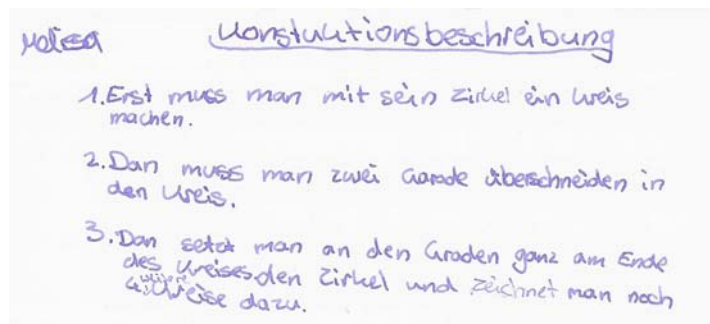 Melisa Konstuktionsbeschreibung
1. Erst muss man mit sein Zirkel ein Kreis
machen.
2. Dan muss man zwei Garade überschneiden in
den Kreis.
3. Dan setzt man an den Graden ganz am Ende
des Kreises den Zirkel und zeichnet man noch
4 weitere Kreise dazu.